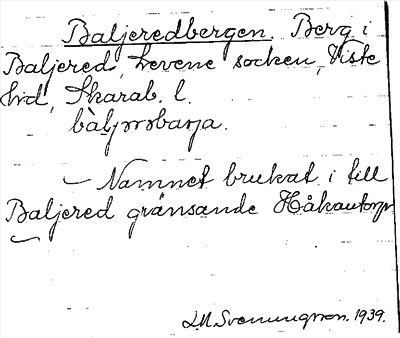 Baljeredbergen. Berg i
Baljered, Levene socken, Viste
hd, Skarab. l.
– Namnet brukat i till
Baljered gränsande Håkantorp
L.M. Svenungsson. 1939.